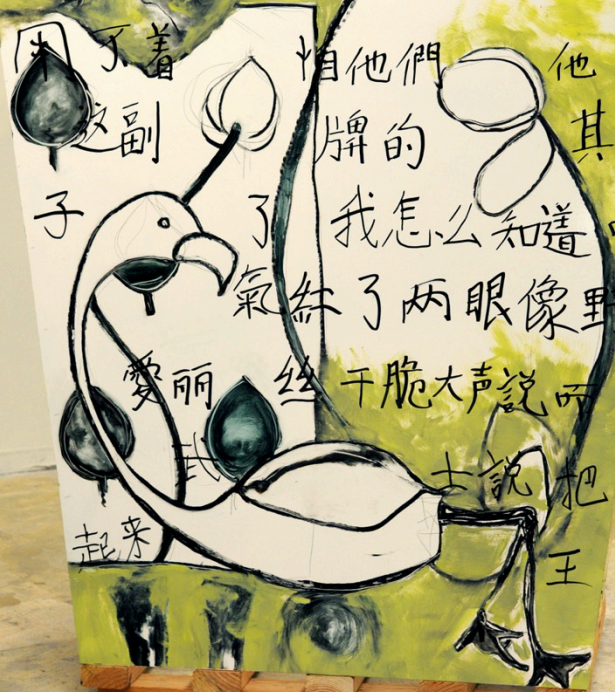 用不着 怕他們 他
这副 牌的 其
子 了 我怎么知道
氣紅了两眼像野
愛丽 丝干脆大声説
武 士説 把
起来 王